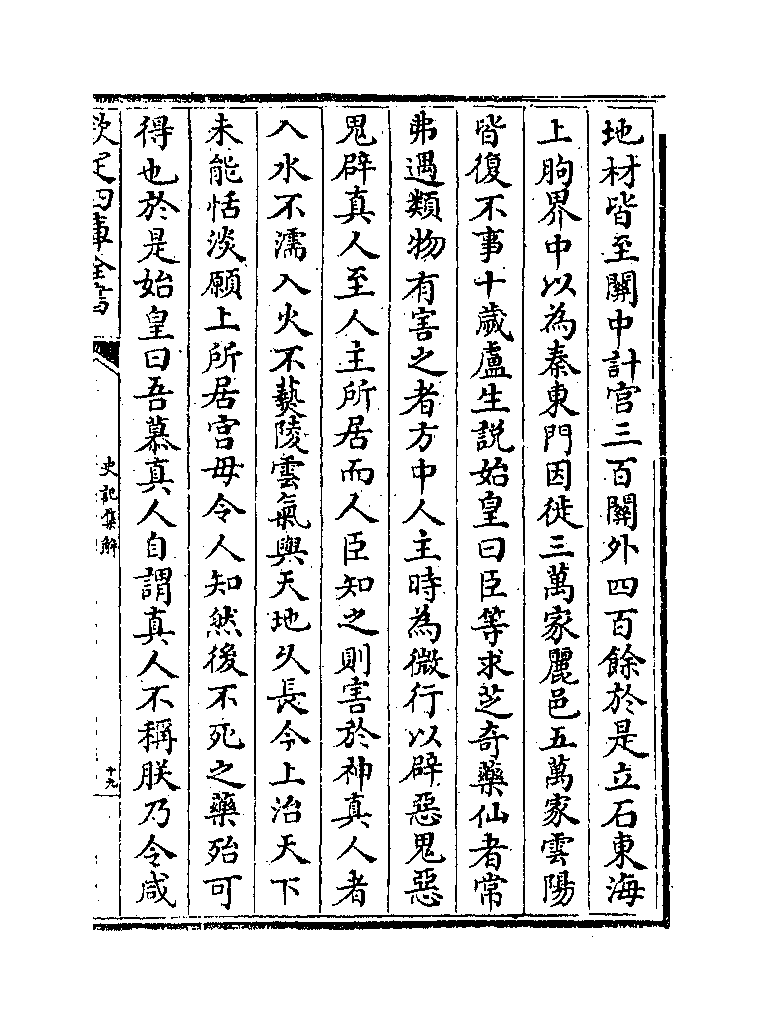 地材皆至關中計宫三百關外四百餘於是立石東海
上朐界中以為秦東門因徙三萬家麗邑五萬家雲陽
皆復不事十歲盧生説始皇曰臣等求芝奇藥仙者常
弗遇類物有害之者方中人主時為微行以辟惡鬼惡
鬼辟真人至人主所居而人臣知之則害於神真人者
入水不濡入火不爇陵雲氣與天地久長今上治天下
未能恬淡願上所居宫毋令人知然後不死之藥殆可
得也於是始皇曰吾慕真人自謂真人不稱朕乃令咸
欽定四庫全書
史記集解
十九